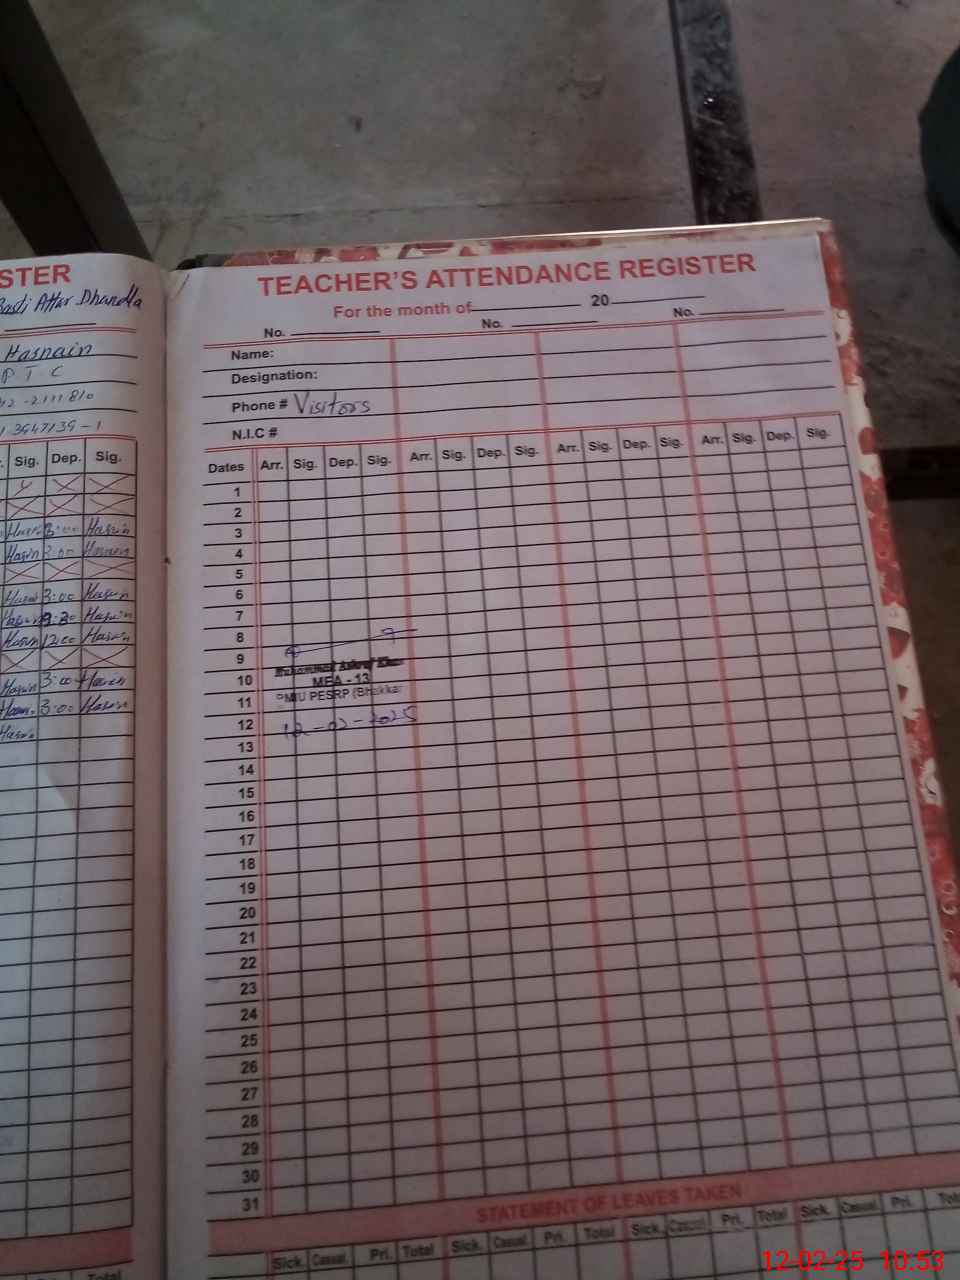 STER
Basti Attar Dhandla
Hasnain
P T C
42-2111810
1 3947139-1
Sig. Dep. Sig.
3:00 Hasnin
3:00 Hasnain
3:00 Hasnin
Hasnin
Hasnin 12:00 Hasnin
Hasnin 3:00
3:00 Hasnin
Total
TEACHER'S ATTENDANCE REGISTER
For the month of 20
No. No. No.
Name:
Designation:
Phone # Visitors
N.I.C #
Dates Arr. Sig. Dep. Sig. Arr. Sig. Dep. Sig. Arr. Sig. Dep. Sig. Arr. Sig. Dep. Sig.
1
2
3
4
5
6
7
8
9
Muhammad Ashraf Khan
10
MEA - 13
11
MIU PESRP (Bhakkar
12
12-02-2025
13
14
15
16
17
18
19
20
21
22
23
24
25
26
27
28
29
30
31
STATEMENT OF LEAVES TAKEN
Sick. Casual. Pri. Total Sick. Casual. Pri. Total Sick. Casual. Pri. Total Sick. Casual. Pri. Tot
12-02-25 10:53